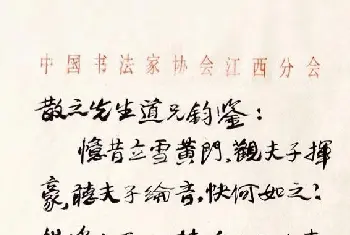 中国书法家协会江西分会
散之先生道兄钧鉴：
憶昔立雪黄門，觀夫子揮
豪，聽夫子綸音，快何如之！